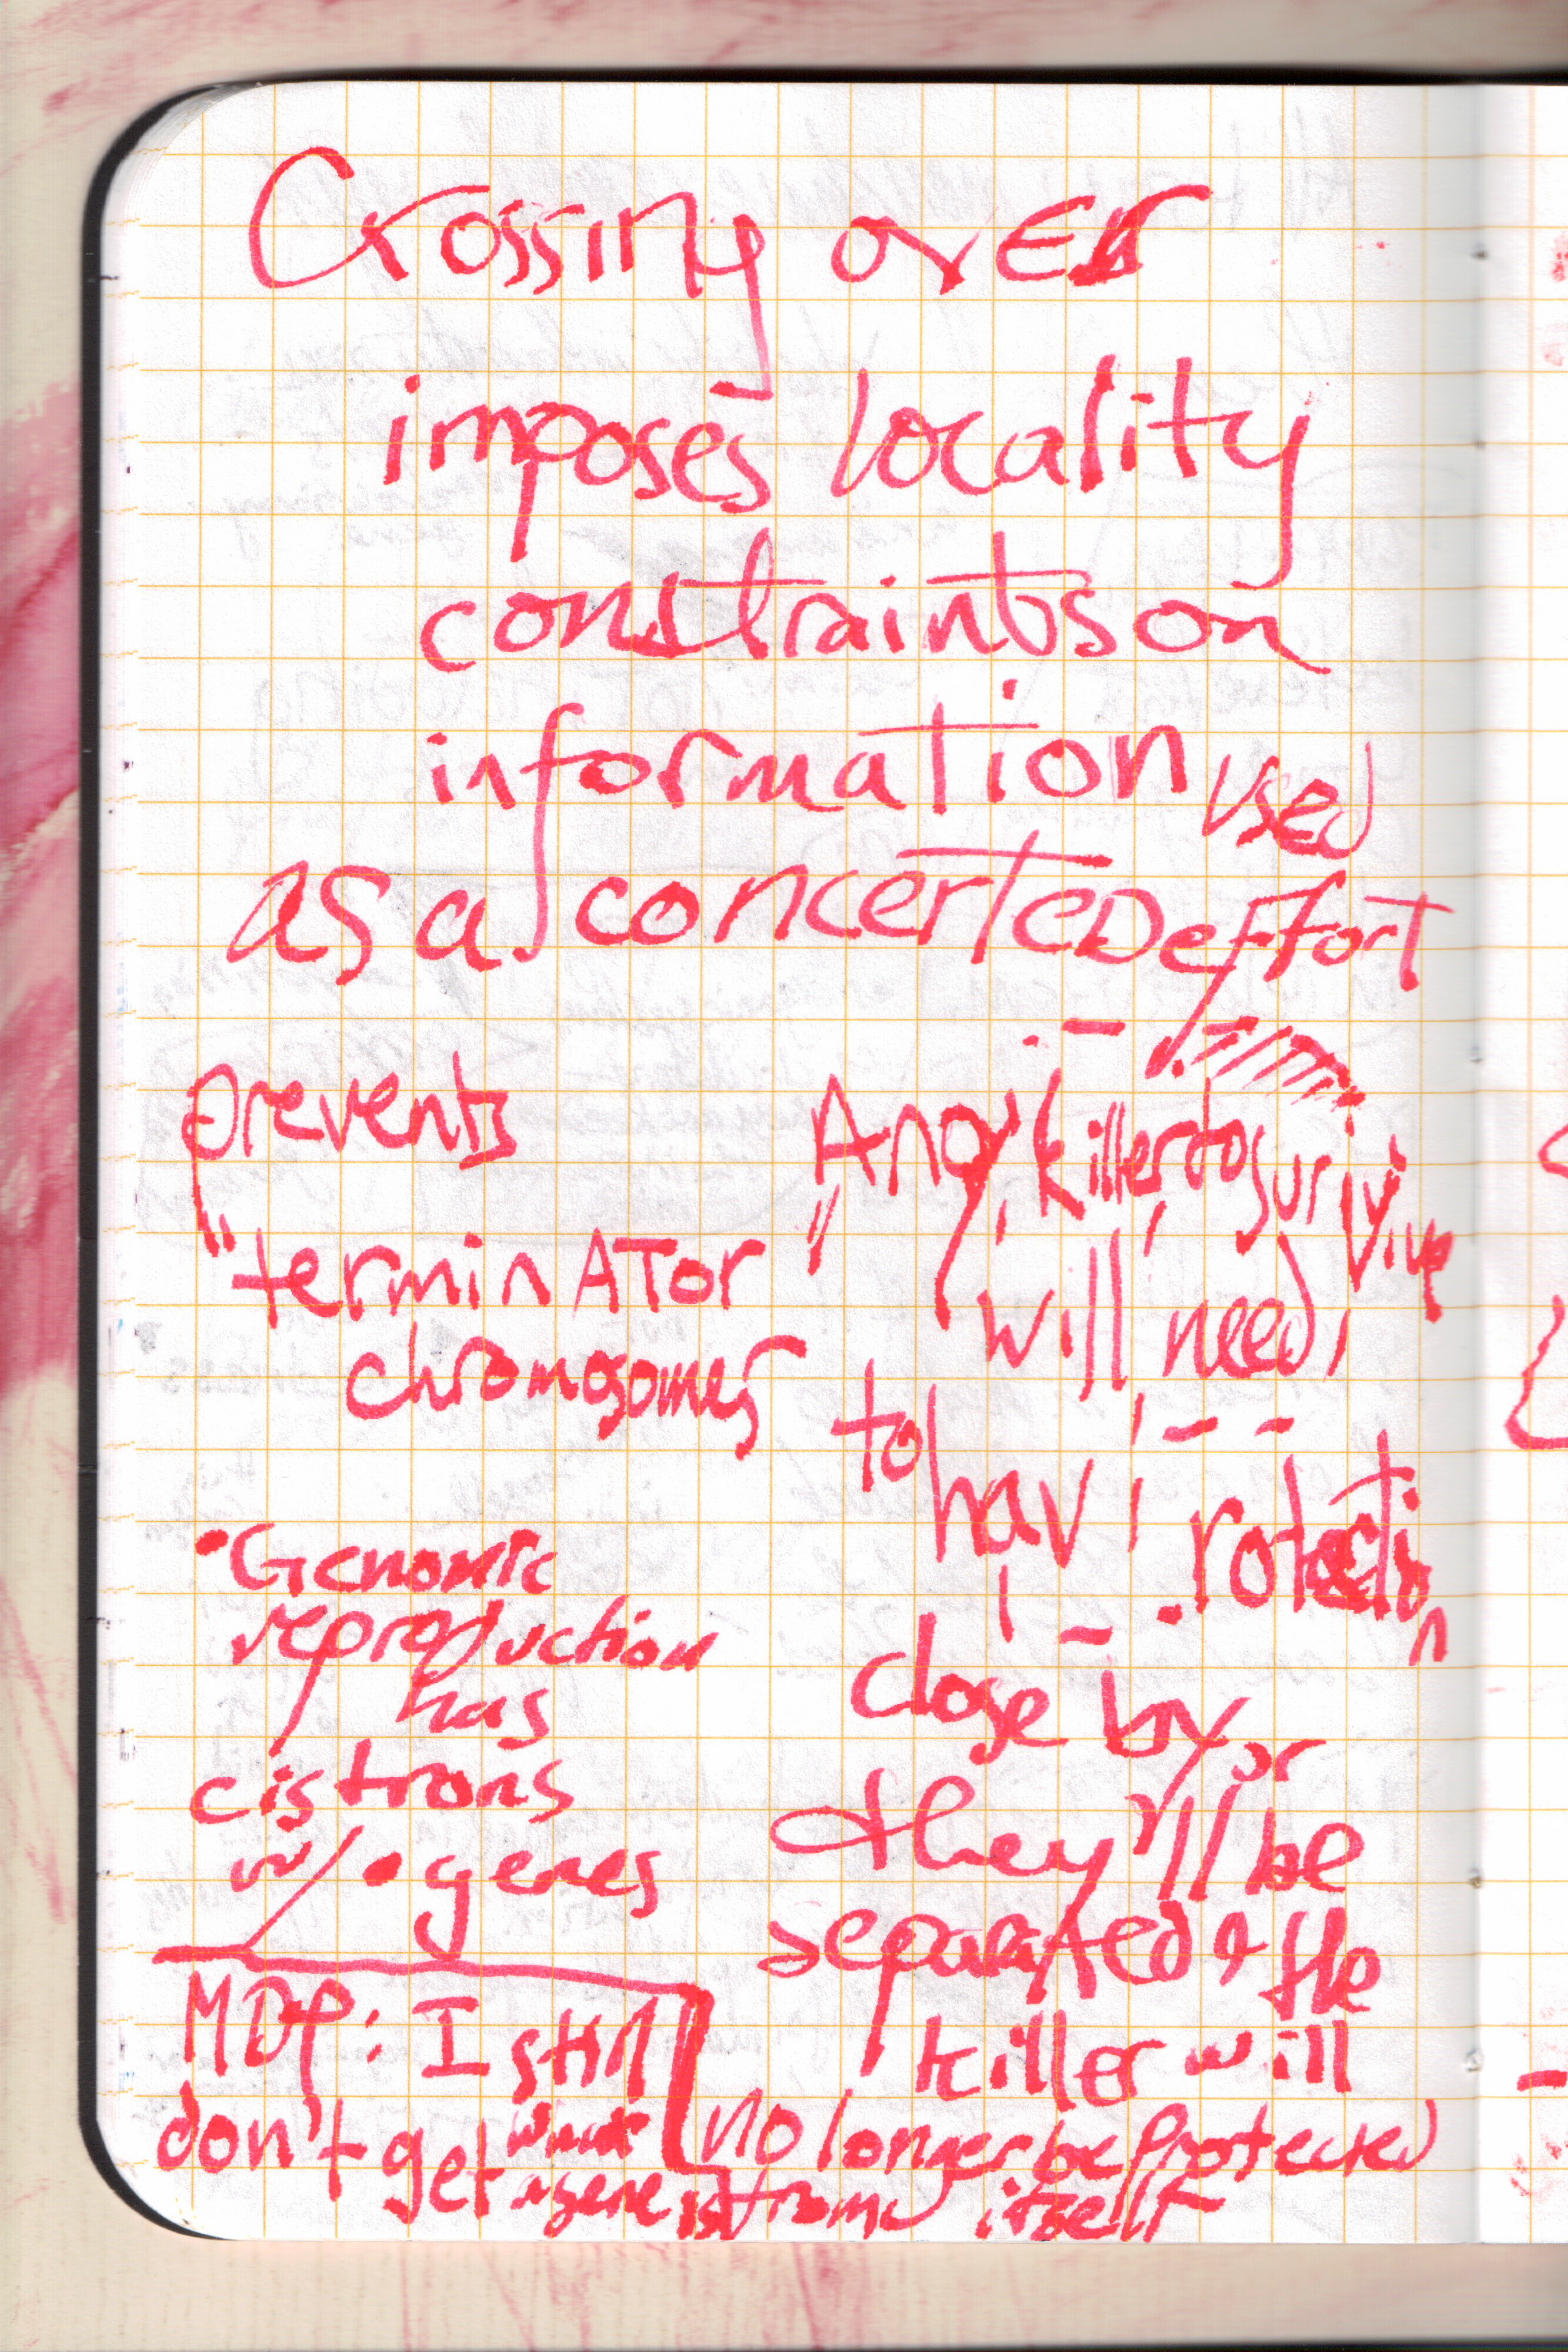 Crossing over
imposes locality
constraints on
information used
as a concerted effort
prevents
"terminATor
chromosomes"
• Genomic
reproduction
has
cistrons
w/ • genes
MDP: I still
don't get what
a gene is
Any killer to surivive
will need
to hav
rotection
close by or
they'll be
separated & the
killer will
no longer be protected
from itself